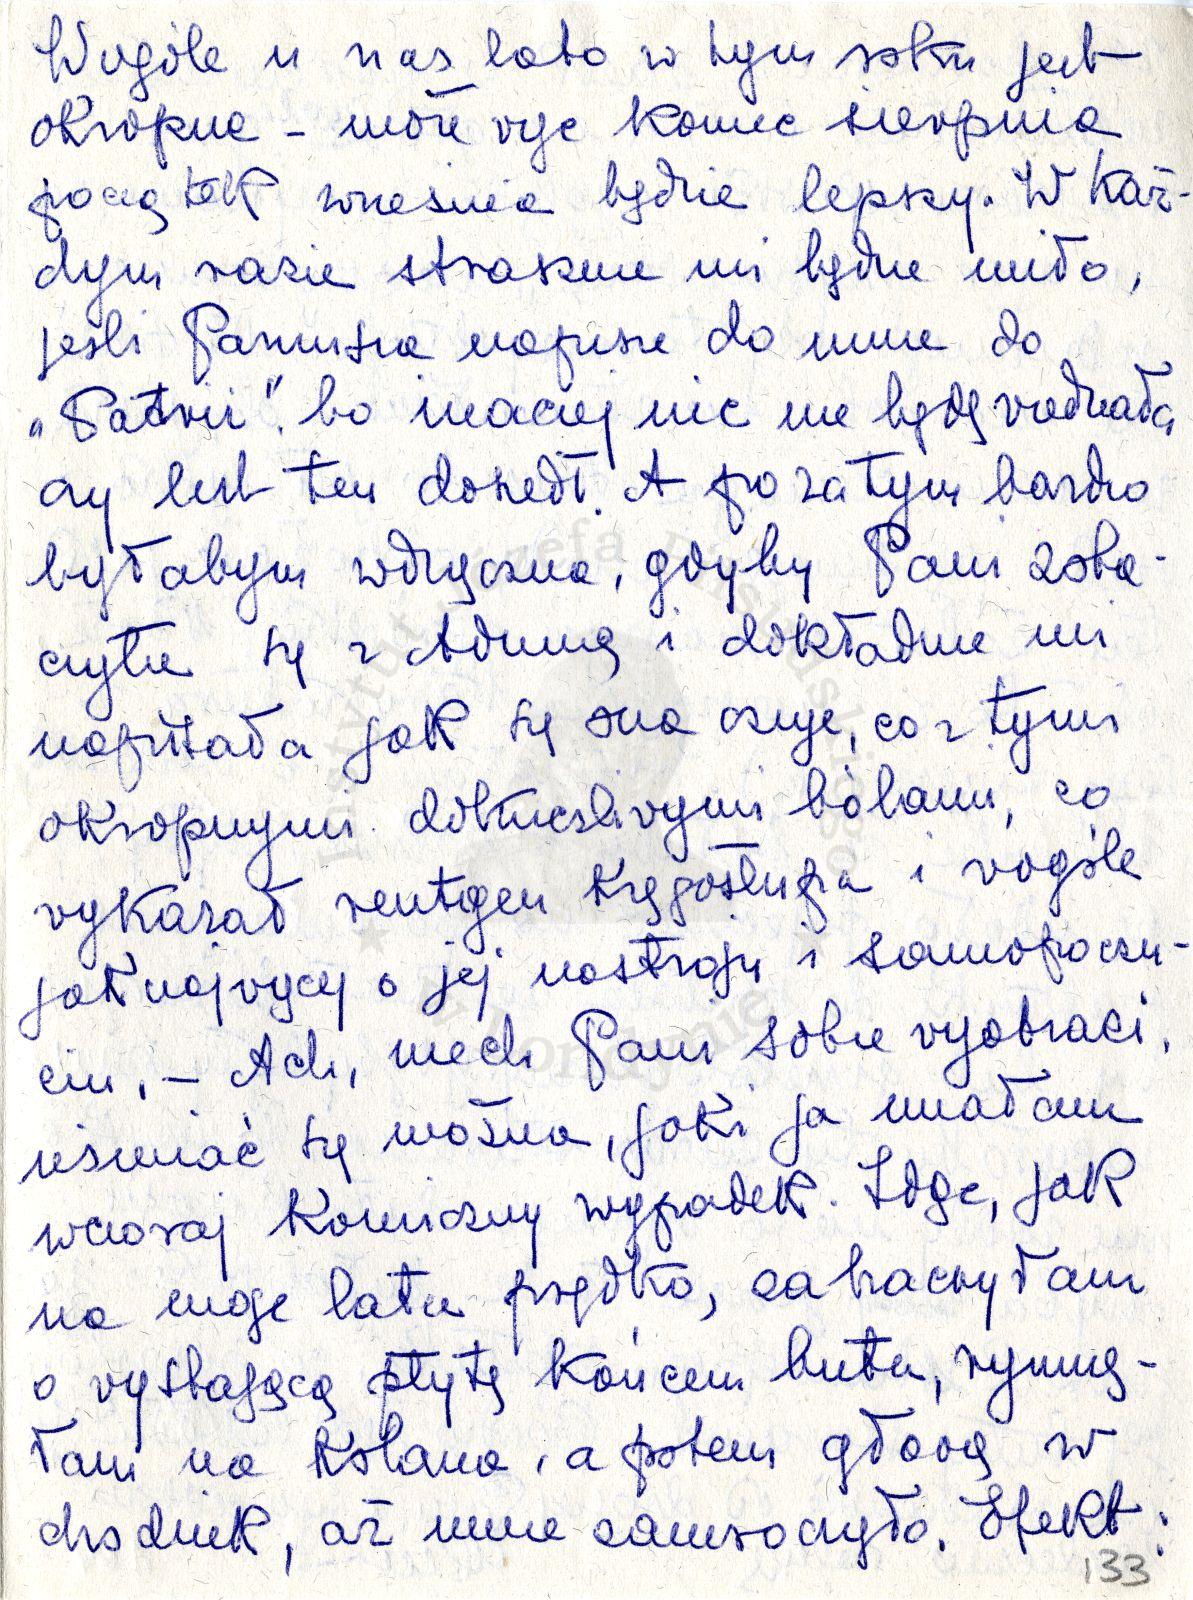 Wogóle u nas lato w tym roku jest
okropne - może więc koniec sierpnia
początek września będzie lepszy. W każ-
dym razie strasznie mi będzie miło,
jeśli Pannusia napisze do mnie do
„Patrii". bo inaczej nic nie będę wiedziała,
czy list ten doszedł. A poza tym bardzo
byłabym wdzięczna, gdyby Pani zoba-
czyła się z Adunią i dokładnie mi
napisała jak się ona czuje, co z tymi
okropnymi dotkliwymi bólami, co
wykazał rentgen kręgosłupa i wogóle
jaknajwięcej o jej nastroju i samopoczu-
ciu. - Ach, niech Pani sobie wyobrazi,
uśmiać się można, jaki ja miałam
wczoraj komiczny wypadek. Idąc, jak
na moje lata prędko, zahaczyłam
o wystającą płytę końcem buta, rymnę-
łam na kolana, a potem głową w
chodnik, aż mnie zamroczyło. Efekt:
133
Instytut Józefa Piłsudskiego
w Londynie